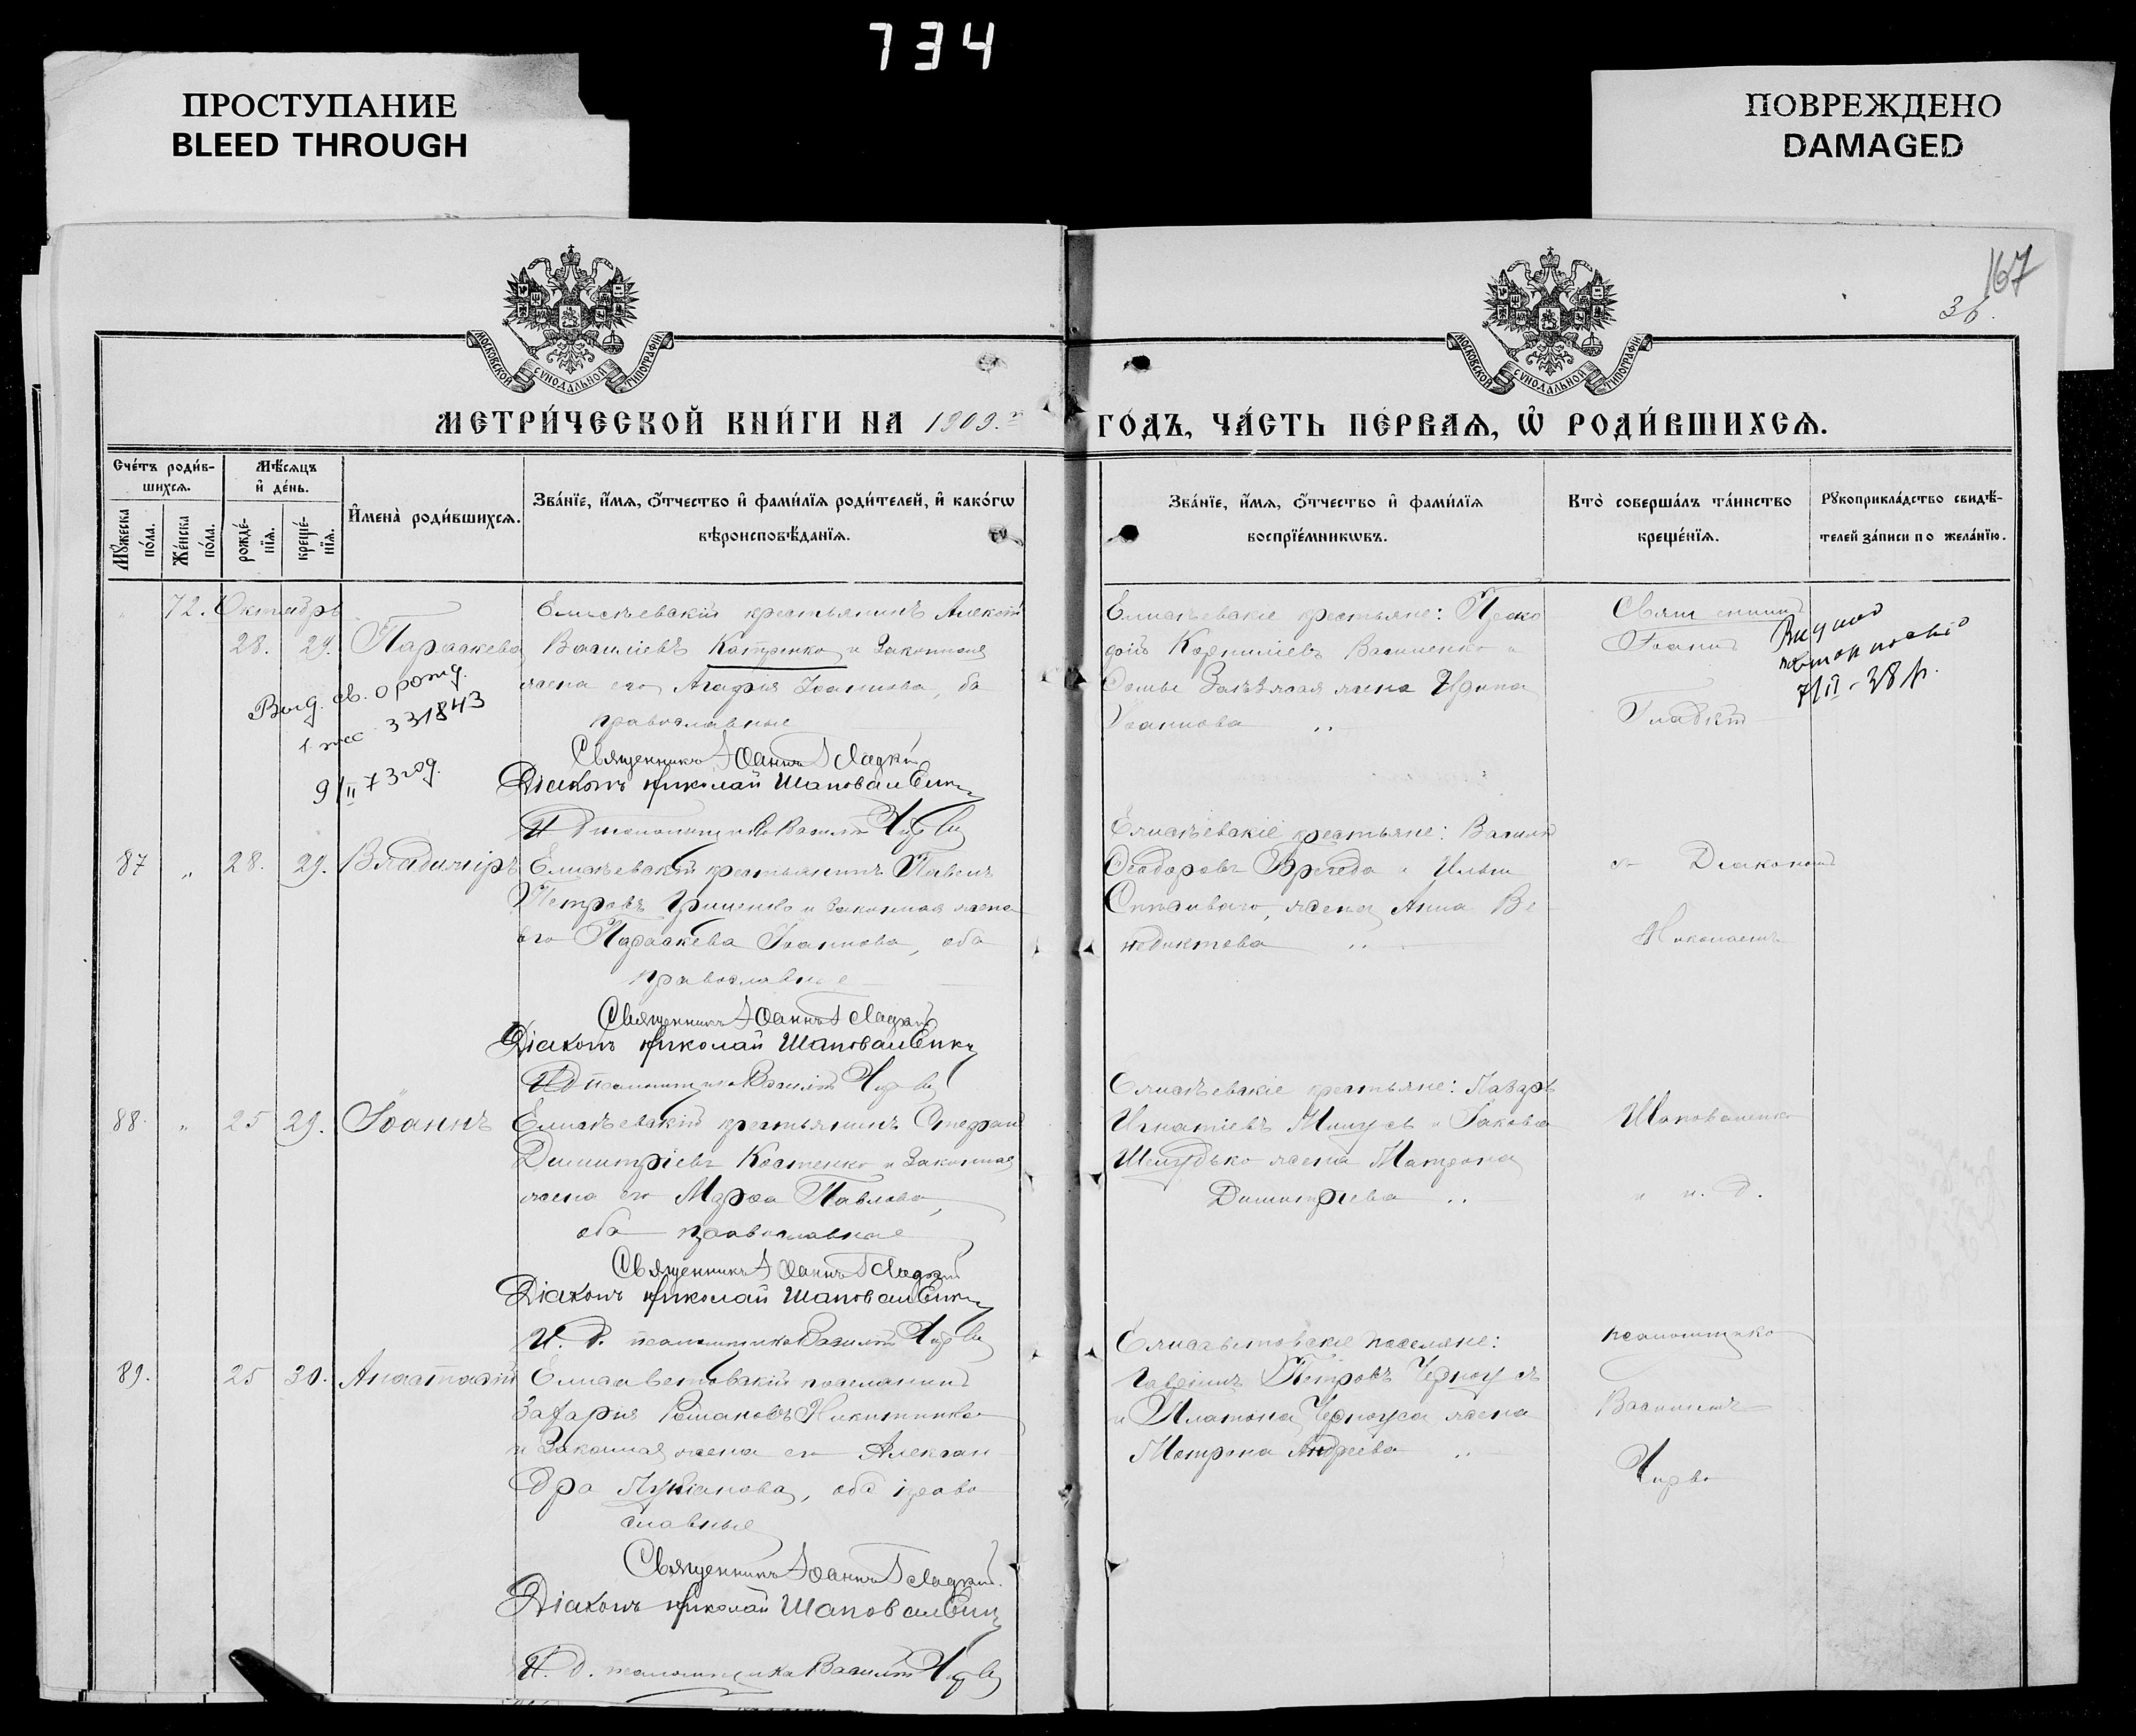 734
ПРОСТУПАНИЕ
BLEED THROUGH
ПОВРЕЖДЕНО
DAMAGED
167
36.
МОСКОВСКОЙ СѴНОДАЛЬНОЙ ТИПОГРАФІИ
МОСКОВСКОЙ СѴНОДАЛЬНОЙ ТИПОГРАФІИ
МЕТРИ́ЧЕСКОЙ КНИ́ГИ НА 1909.
ГО́ДЪ, ЧА́СТЬ ПЕ́РВАѦ, Ѡ҆ РОДИ́ВШИХСѦ.
Сче́тъ роди́в-
шихсѧ.
Мꙋ́жеска
по́ла.
Же́нска
по́ла.
Мѣ́сѧцъ
и҆ де́нь.
рожде́-
нїѧ.
креще́-
нїѧ.
И҆мена̀ роди́вшихсѧ.
Зва́нїе, и҆́мѧ, ѻ҆́тчество и҆ фами́лїѧ роди́телей, и҆ како́гѡ
вѣроисповѣ́данїѧ.
Зва́нїе, и҆́мѧ, ѻ҆́тчество и҆ фами́лїѧ
воспрїе́мникѡвъ.
Кто̀ соверша́лъ та́инство
креще́нїѧ.
Рꙋкоприкла́дство свидѣ́-
телей за́писи по жела́нїю.
72. Октябрь
28. 29. Параскева
Елисѣевскій крестьянинъ Алексѣй
Василіевъ Катренко и законная
жена его Агафія Іоаннова, оба
православные
Выд. св. о рожд.
331843
9/II 73 год.
Священникъ Іоаннъ Гладкій
Діаконъ Николай Шаповаленко
И д псаломщика Василій Чирва
Елисѣевскіе крестьяне: Проко
фій Корниліевъ Василенко и
жена Ирина
Іоаннова
Священникъ
Іоаннъ
Гладкій
Выдано
повторное
7/II - 38 р.
87 " 28. 29. Владиміръ
Елисѣевскій крестьянинъ Павелъ
Петровъ Гриценко и законная жена
его Параскева Іоаннова, оба
православные
Священникъ Іоаннъ Гладкій
Діаконъ Николай Шаповаленко
И д псаломщика Василій Чирва
Елисѣевскіе крестьяне: Василій
Ѳеодоровъ и Ильи
жена Анна Ве-
недиктова
съ Діакономъ
Николаемъ
88. " 25 29. Іоаннъ
Елисѣевскій крестьянинъ Стефанъ
Димитріевъ Костенко и законная
жена его Марѳа Павлова,
оба православные
Священникъ Іоаннъ Гладкій
Діаконъ Николай Шаповаленко
И. д. псаломщика Василій Чирва
Елисѣевскіе крестьяне: Лазарь
Игнатіевъ и Іакова
Шелудько жена Матрона
Димитріева
Шаповаленко
и и. д.
89. 25 30. Анастасій
Елисаветовскій поселянинъ
Захарія Романовъ Никитенко
и законная жена его Алексан
дра Лукіанова, оба право
славные
Священникъ Іоаннъ Гладкій.
Діаконъ Николай Шаповаленко
И. д. псаломщика Василій Чирва
Елисаветовскіе поселяне:
Гавріилъ Петровъ Черноусъ
и Платона Черноуса жена
Матрона Андреева
псаломщика
Василіемъ
Чирва